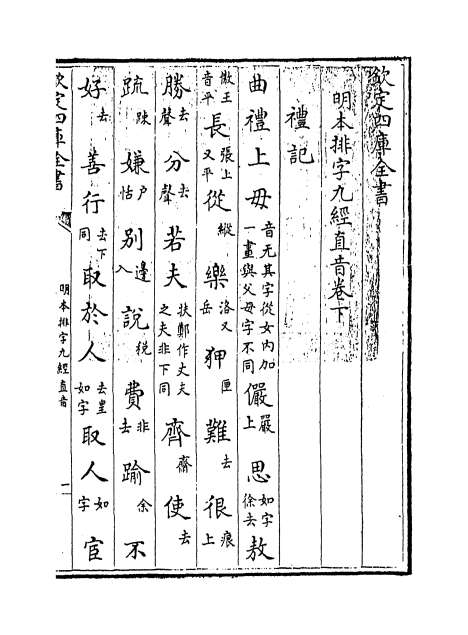 欽定四庫全書
明本排字九經直音卷下
禮記
曲禮上毋音无其字從女内加一畫與父母字不同儼嚴上思如字徐去敖
慠王音平長張上又平從縱樂洛又岳狎匣難去很痕上
勝去聲分去聲若夫扶鄭作丈夫之夫非下同齊齋使去
疏踈嫌户恬别邊入說稅費非去踰余不
好去善行去下同取於人去皇如字取人如字宦
欽定四庫全書
明本排字九經直音
一